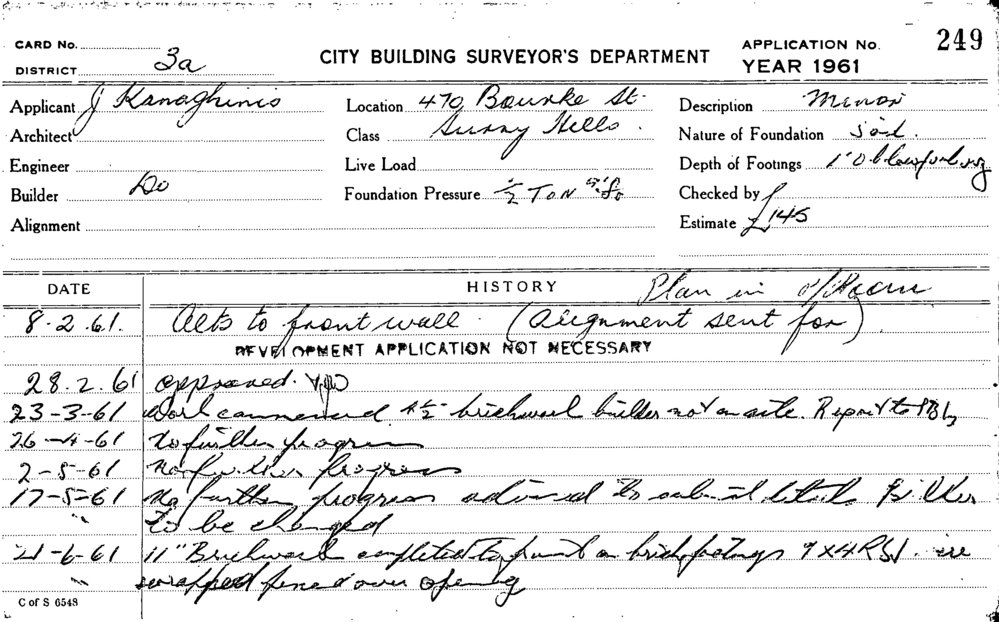 CARD No.
DISTRICT 3a
CITY BUILDING SURVEYOR'S DEPARTMENT
APPLICATION No. 249
YEAR 1961
Applicant J Kanaghinis
Architect
Engineer
Builder Do
Alignment
Location 470 Bourke St.
Class Surry Hills.
Live Load
Foundation Pressure 1/2 TON
Description Minor
Nature of Foundation soil.
Depth of Footings 1'0
Checked by
Estimate £145
DATE
HISTORY
Plan in
8.2.61. Alts to front wall. (Alignment sent for)
DEVELOPMENT APPLICATION NOT NECESSARY
28.2.61 approved.
23-3-61 Work commenced 4½ brickwork builder not on site. Report to
26-4-61 No further progress
2-5-61 No further progress
17-5-61 No further progress advised to submit
" To be changed
21-6-61 11" Brickwork completed to front on brick footings 9x4 RSJ.
" wrapped over opening
C of S 6548